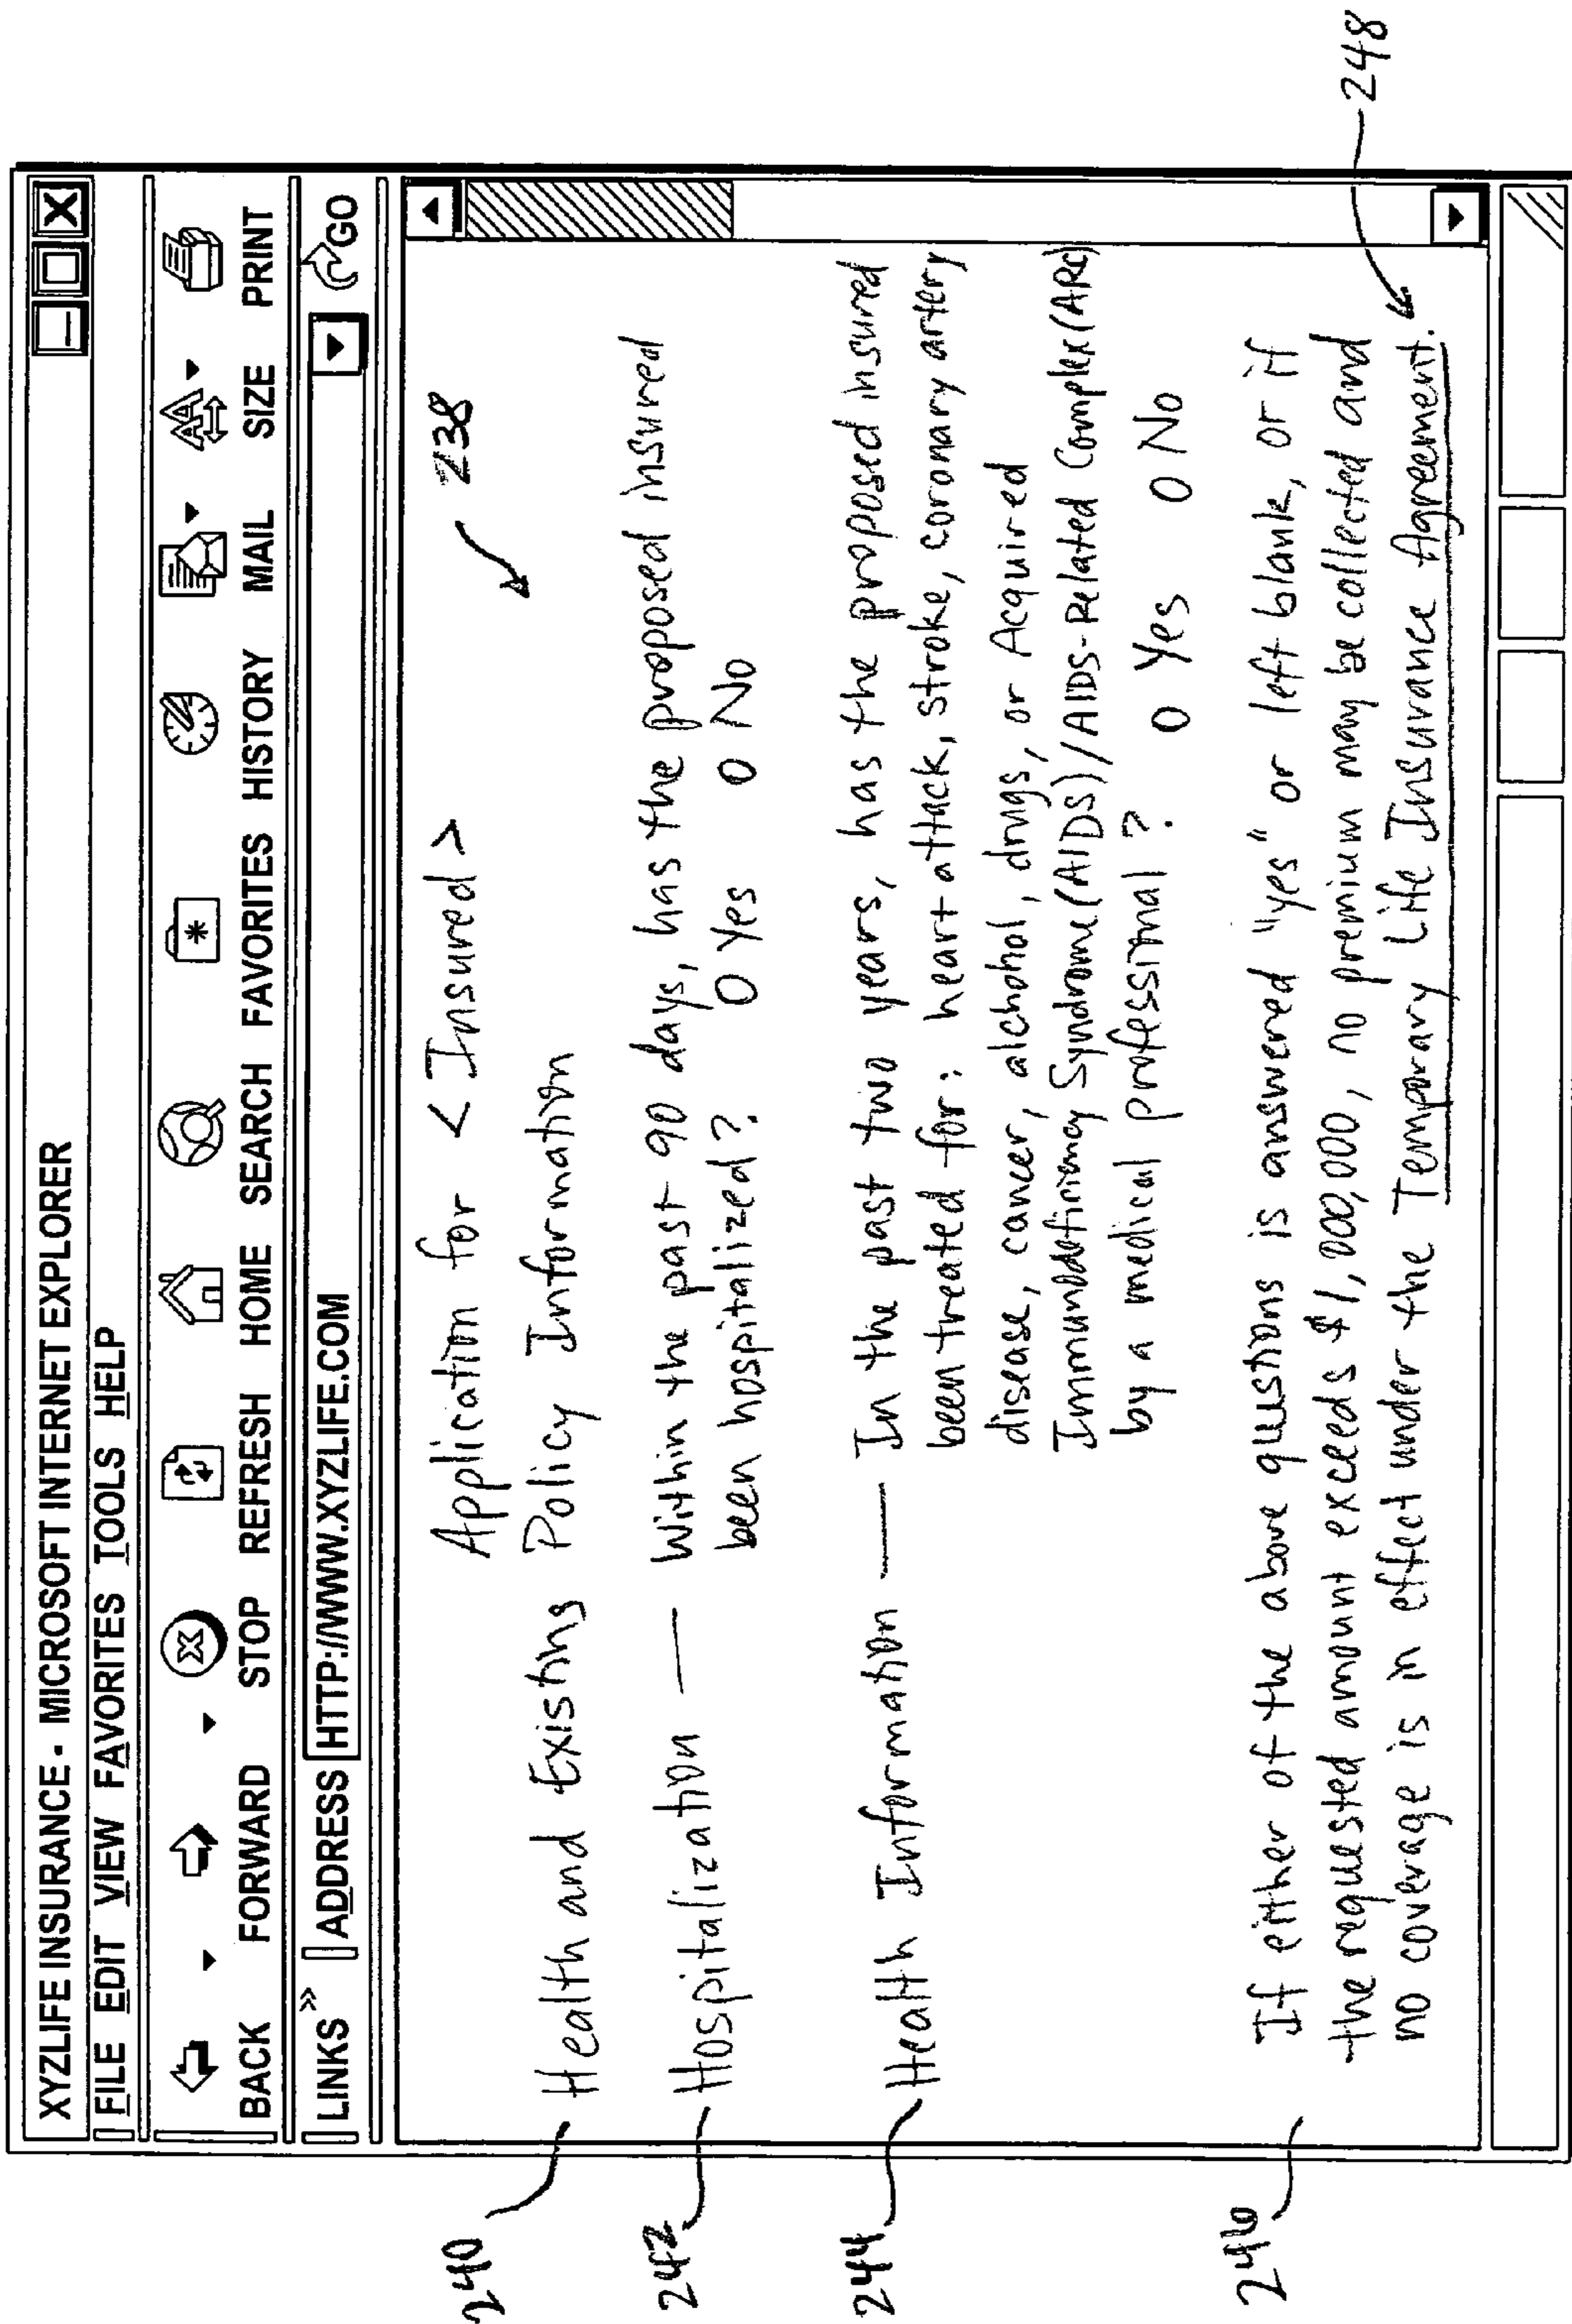 XYZLIFE INSURANCE - MICROSOFT INTERNET EXPLORER
FILE EDIT VIEW FAVORITES TOOLS HELP
BACK FORWARD STOP REFRESH HOME SEARCH FAVORITES HISTORY MAIL SIZE PRINT
LINKS » ADDRESS HTTP://WWW.XYZLIFE.COM GO
Application for <Insured>
238
240 Health and Existing Policy Information
242 Hospitalization — Within the past 90 days, has the proposed insured
been hospitalized? O Yes O No
244 Health Information — In the past two years, has the proposed insured
been treated for: heart attack, stroke, coronary artery
disease, cancer, alchohol, drugs, or Acquired
Immunodeficiency Syndrome (AIDS)/AIDS-Related Complex (ARC)
by a medical professional? O Yes O No
246 If either of the above questions is answered "yes" or left blank, or if
the requested amount exceeds $1,000,000, no premium may be collected and
no coverage is in effect under the Temporary Life Insurance Agreement.
248